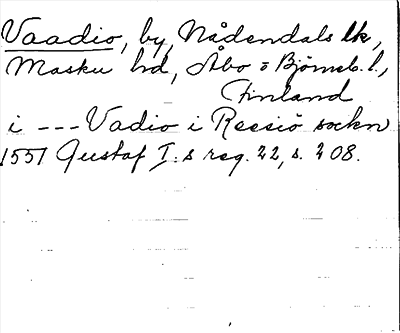 Vaadio, by, Nådendals lk,
Masku hd, Åbo o Björneb. l.,
Finland
i --- Vadio i Resiö sockn
1551 Gustaf I. s reg. 22, s. 208.